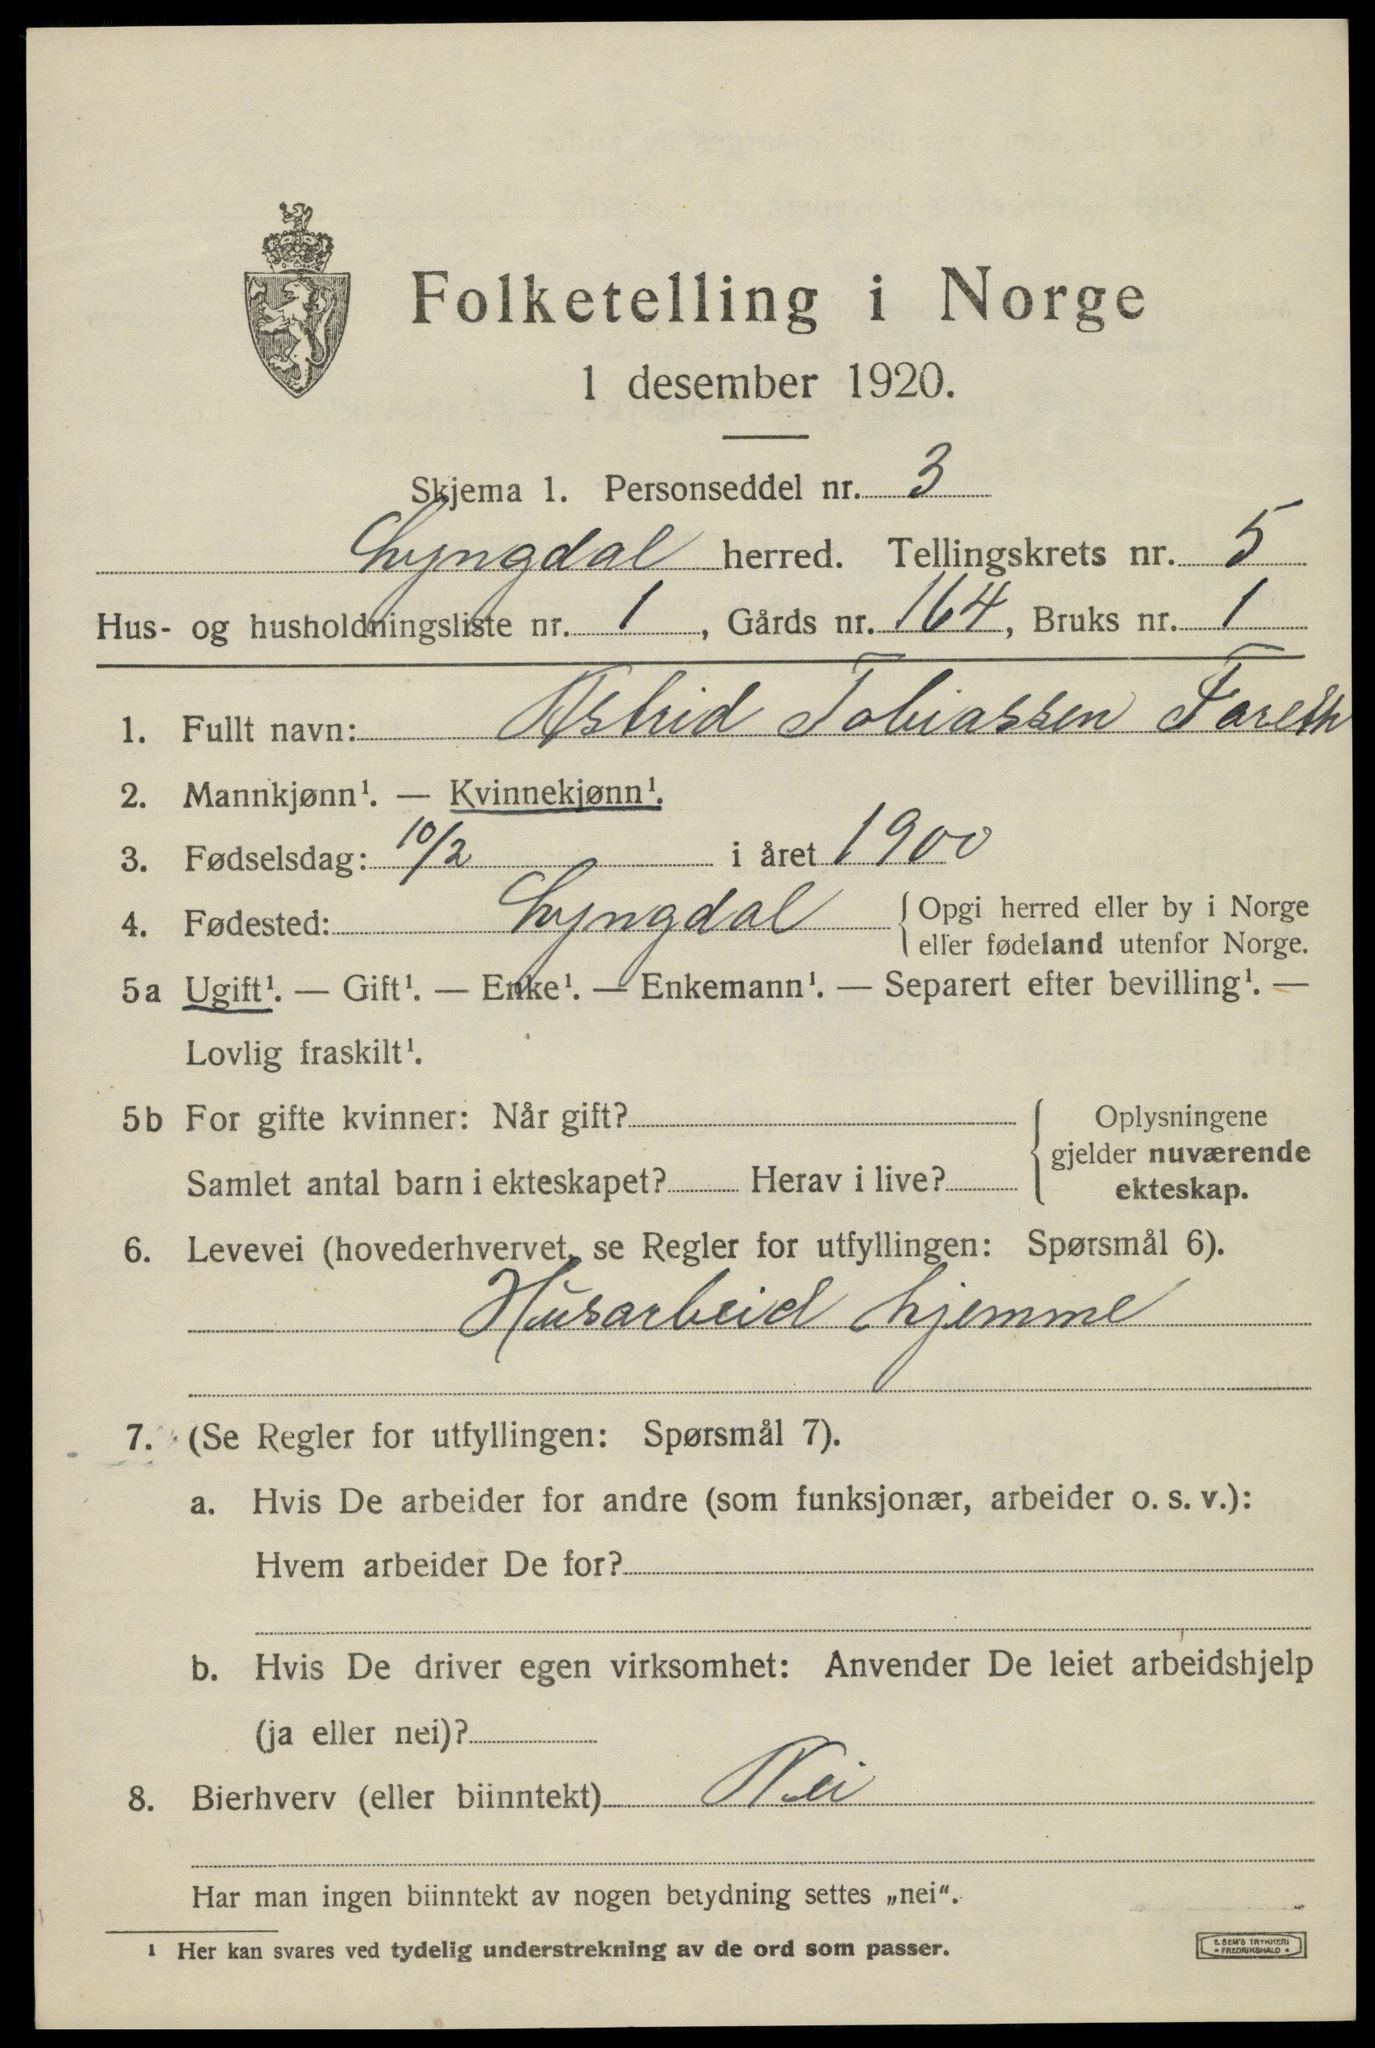 Folketelling i Norge
1 desember 1920.
Skjema 1. Personseddel nr. 3
Lyngdal herred. Tellingskrets nr. 5
Hus- og husholdningsliste nr. 1, Gårds nr. 164, Bruks nr. 1
1. Fullt navn: Astrid Tobiassen Fareth
2. Mannkjønn¹. — Kvinnekjønn¹.
3. Fødselsdag: 10/2 i året 1900
4. Fødested: Lyngdal { Opgi herred eller by i Norge
eller fødeland utenfor Norge.
5a Ugift¹. — Gift¹. — Enke¹. — Enkemann¹. — Separert efter bevilling¹. —
Lovlig fraskilt¹.
5b For gifte kvinner: Når gift? { Oplysningene
gjelder nuværende
Samlet antal barn i ekteskapet? Herav i live? ekteskap.
6. Levevei (hovederhvervet, se Regler for utfyllingen: Spørsmål 6).
Husarbeid hjemme
7. (Se Regler for utfyllingen: Spørsmål 7).
a. Hvis De arbeider for andre (som funksjonær, arbeider o. s. v.):
Hvem arbeider De for?
b. Hvis De driver egen virksomhet: Anvender De leiet arbeidshjelp
(ja eller nei)?
8. Bierhverv (eller biinntekt) Nei
Har man ingen biinntekt av nogen betydning settes „nei“.
¹ Her kan svares ved tydelig understrekning av de ord som passer.
E. SEM'S TRYKKERI
• FREDRIKSHALD •